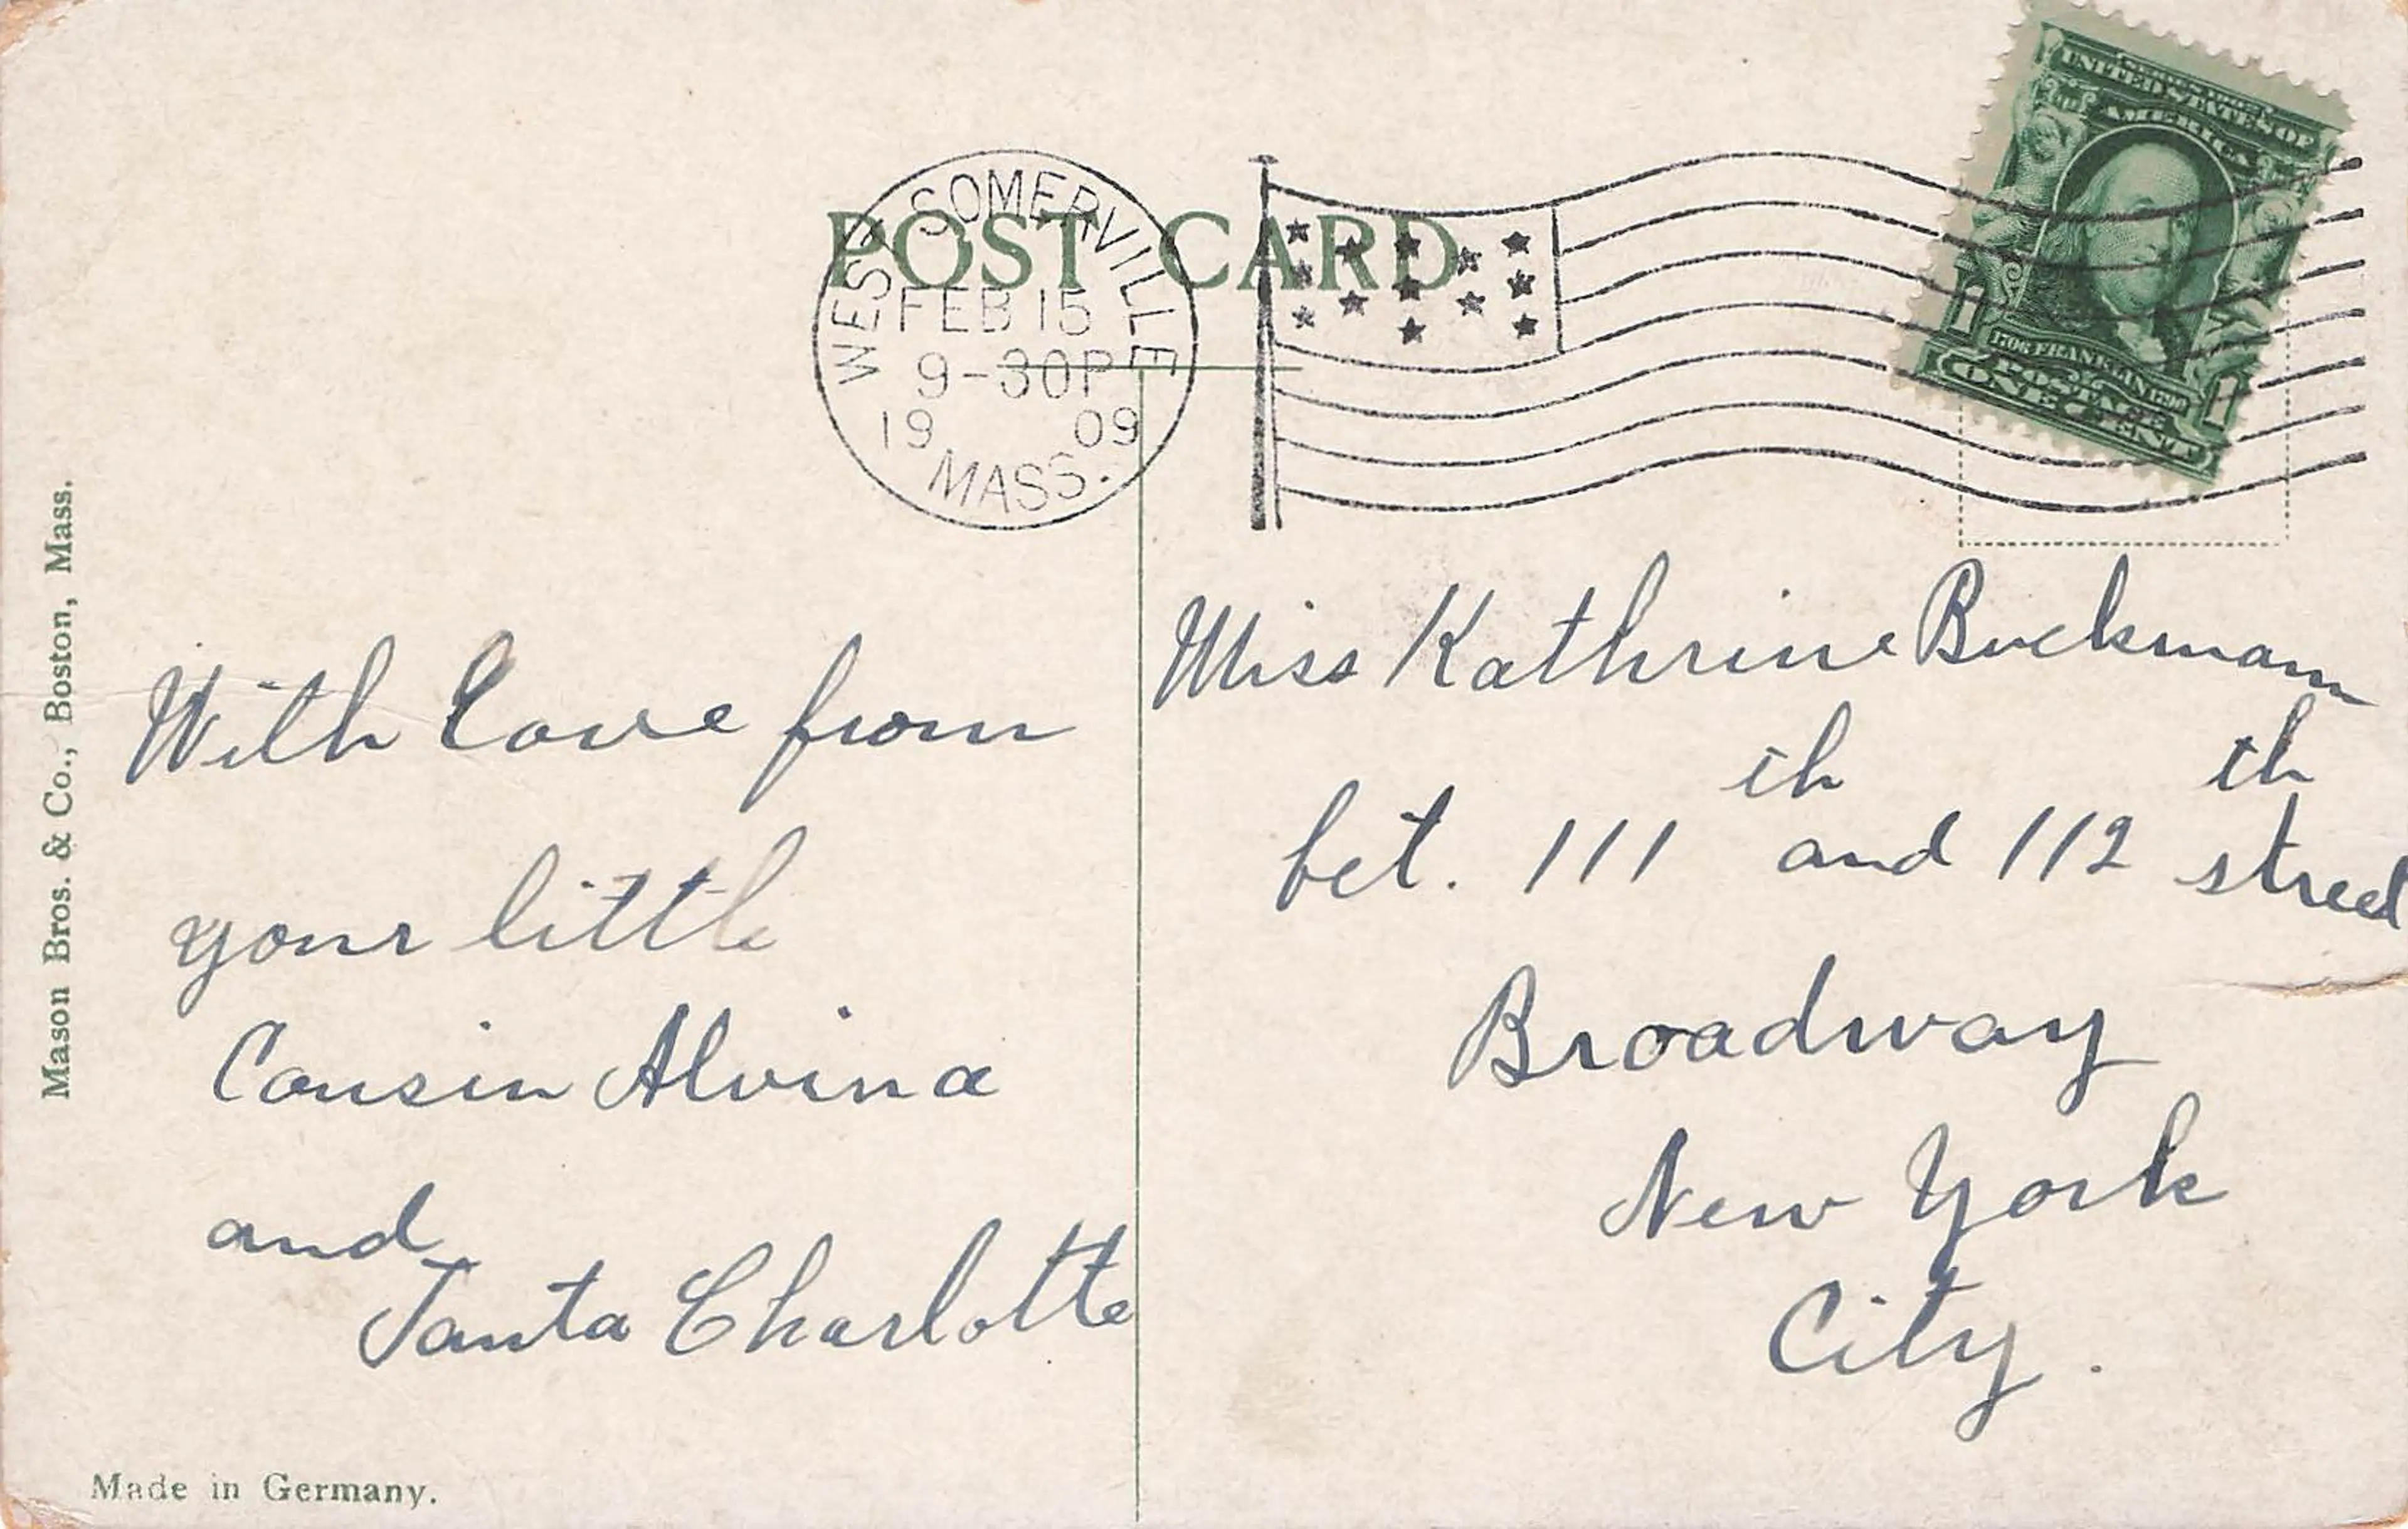 POST CARD
WEST SOMERVILLE
FEB 15
9-30P
19 09
MASS.
SERIES 1902
UNITED STATES OF
AMERICA
1 1
1706 FRANKLIN 1790
POSTAGE
ONE CENT
Mason Bros. & Co., Boston, Mass.
With Love from
your little
Cousin Alvina
and
Tanta Charlotte
Miss Kathrine Buckmann
bet. 111th and 112th street
Broadway
New York
City.
Made in Germany.